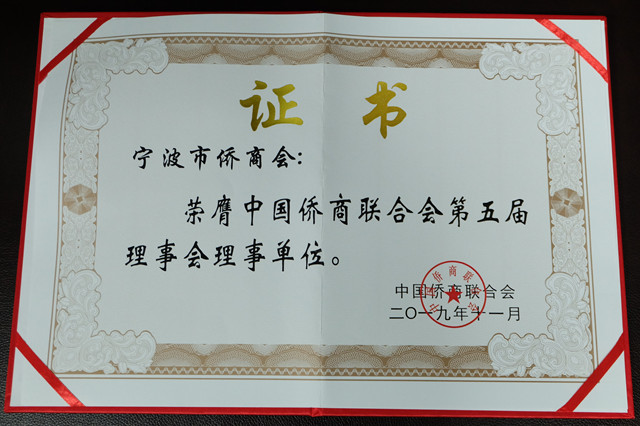 证书
宁波市侨商会：
荣膺中国侨商联合会第五届
理事会理事单位。
中国侨商联合会
二〇一九年十一月